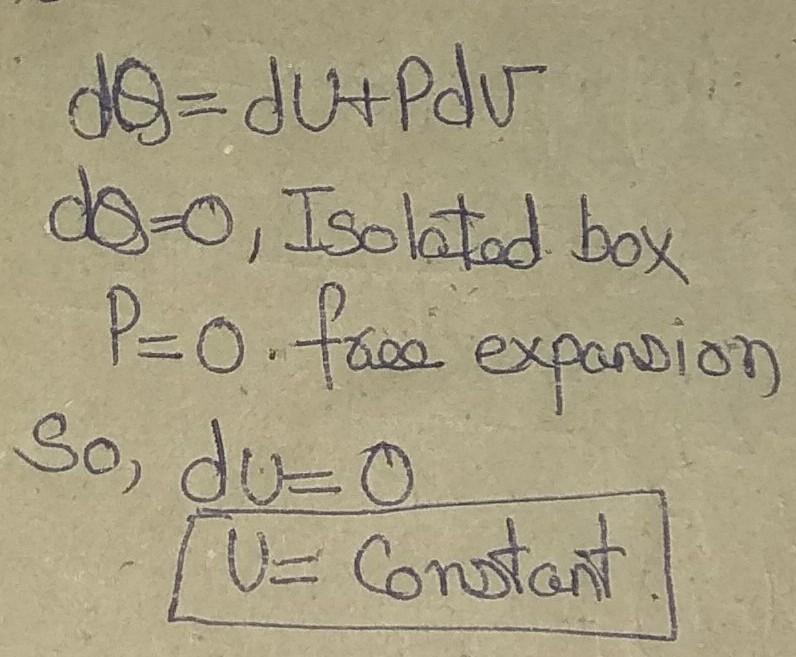 dQ = dU + PdV
dQ = 0, Isolated box
P = 0. free expansion
So, dU = 0
U = Constant.